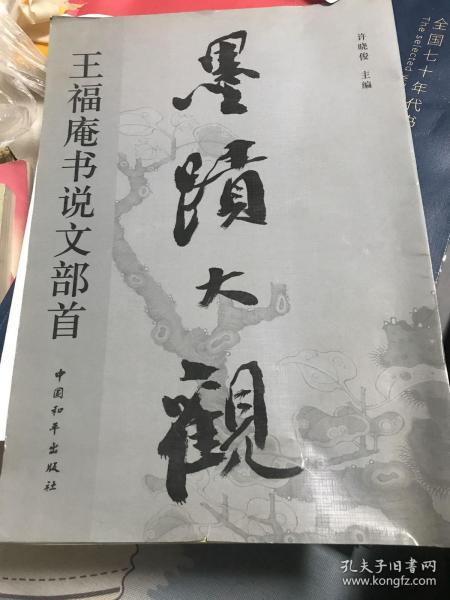 墨蹟大觀
许晓俊 主编
王福庵书说文部首
中国和平出版社
全国七十年代书
The Selected
孔夫子旧书网
www.kongfz.com